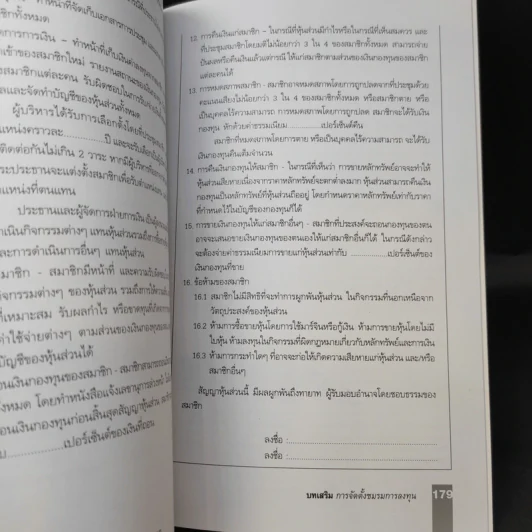 ทำหน้าที่จัดเก็บเอกสารการประชุม
สมาชิกทั้งหมด
การเงิน - ทำหน้าที่เก็บเงินค่าลงหุ้น
เข้าของสมาชิกใหม่ รายงานสถานะ
สมาชิกแต่ละคน รับผิดชอบในการรับ
และจัดทำบัญชีของหุ้นส่วนทั้งหมด
ผู้บริหารได้รับการเลือกตั้งโดยที่ประชุม
แหน่งคราวละ...............ปี และจะรับเลือก
ติดต่อกันไม่เกิน 2 วาระ หากมีผู้
ประธานจะแต่งตั้งสมาชิกเพื่อรับตำแหน่ง
แหน่งที่ตนแทน
ประธานและผู้จัดการฝ่ายการเงิน เป็นผู้
ดำเนินกิจกรรมต่างๆ แทนหุ้นส่วน
และการดำเนินการอื่นๆ แทนหุ้นส่วน
สมาชิก - สมาชิกมีหน้าที่ และความรับผิด
กิจกรรมต่างๆ ของหุ้นส่วน รวมถึงการให้
ที่เหมาะสม รับผลกำไร หรือขาดทุนที่
ค่าใช้จ่ายต่างๆ ตามส่วนของเงินกองทุน
บัญชีของหุ้นส่วนได้
ถอนเงินกองทุนของสมาชิก - สมาชิกสามารถ
ทั้งหมด โดยทำหนังสือแจ้งเลขานุการ
ถอนเงินกองทุนก่อนสิ้นสุดสัญญาหุ้นส่วน
...............เปอร์เซ็นต์ของเงินที่ถอน
12. การคืนเงินแก่สมาชิก - ในกรณีที่หุ้นส่วนมีกำไรหรือในกรณีที่เห็นสมควร และ
ที่ประชุมสมาชิกโดยมติไม่น้อยกว่า 3 ใน 4 ของสมาชิกทั้งหมด สามารถจ่าย
ปันผลหรือคืนเงินแล้วแต่กรณี ให้แก่สมาชิกตามส่วนของเงินกองทุนของสมาชิก
แต่ละคนได้
13. การหมดสภาพสมาชิก - สมาชิกอาจหมดสภาพโดยการถูกปลดจากที่ประชุมด้วย
คะแนนเสียงไม่น้อยกว่า 3 ใน 4 ของสมาชิกทั้งหมด หรือสมาชิกตาย หรือ
เป็นบุคคลไร้ความสามารถ การหมดสภาพโดยการถูกปลด สมาชิกจะได้รับเงิน
กองทุน หักด้วยค่าธรรมเนียม ...............เปอร์เซ็นต์คืน
สมาชิกที่หมดสภาพโดยการตาย หรือเป็นบุคคลไร้ความสามารถ จะได้รับ
เงินกองทุนคืนเต็มจำนวน
14. การคืนเงินกองทุนให้สมาชิก - ในกรณีที่เห็นว่า การขายหลักทรัพย์อาจจะทำให้
หุ้นส่วนเสียหายเนื่องจากราคาหลักทรัพย์จะตกต่ำลงมาก หุ้นส่วนสามารถคืนเงิน
กองทุนเป็นหลักทรัพย์ที่หุ้นส่วนถืออยู่ โดยกำหนดราคาหลักทรัพย์เท่ากับราคา
ที่กำหนดไว้ในบัญชีของกองทุนก็ได้
15. การขายเงินกองทุนให้แก่สมาชิกอื่นๆ - สมาชิกที่ประสงค์จะถอนกองทุนของตน
อาจจะเสนอขายเงินกองทุนของตนเองให้แก่สมาชิกอื่นก็ได้ ในกรณีดังกล่าว
จะต้องจ่ายค่าธรรมเนียมการขายแก่หุ้นส่วนเท่ากับ ...............เปอร์เซ็นต์ของ
เงินกองทุนที่ขาย
16. ข้อห้ามของสมาชิก
16.1 สมาชิกไม่มีสิทธิที่จะทำการผูกพันหุ้นส่วน ในกิจกรรมที่นอกเหนือจาก
วัตถุประสงค์ของหุ้นส่วน
16.2 ห้ามการซื้อขายหุ้นโดยการใช้มาร์จินหรือกู้เงิน ห้ามการขายหุ้นโดยไม่มี
ใบหุ้น ห้ามลงทุนในกิจกรรมที่ผิดกฎหมายเกี่ยวกับหลักทรัพย์และการเงิน
16.3 ห้ามการกระทำใดๆ ที่อาจจะก่อให้เกิดความเสียหายแก่หุ้นส่วน และ/หรือ
สมาชิกอื่นๆ
สัญญาหุ้นส่วนนี้ มีผลผูกพันถึงทายาท ผู้รับมอบอำนาจโดยชอบธรรมของ
สมาชิก
ลงชื่อ :..............................
ลงชื่อ :..............................
บทเสริม การจัดตั้งชมรมการลงทุน 179